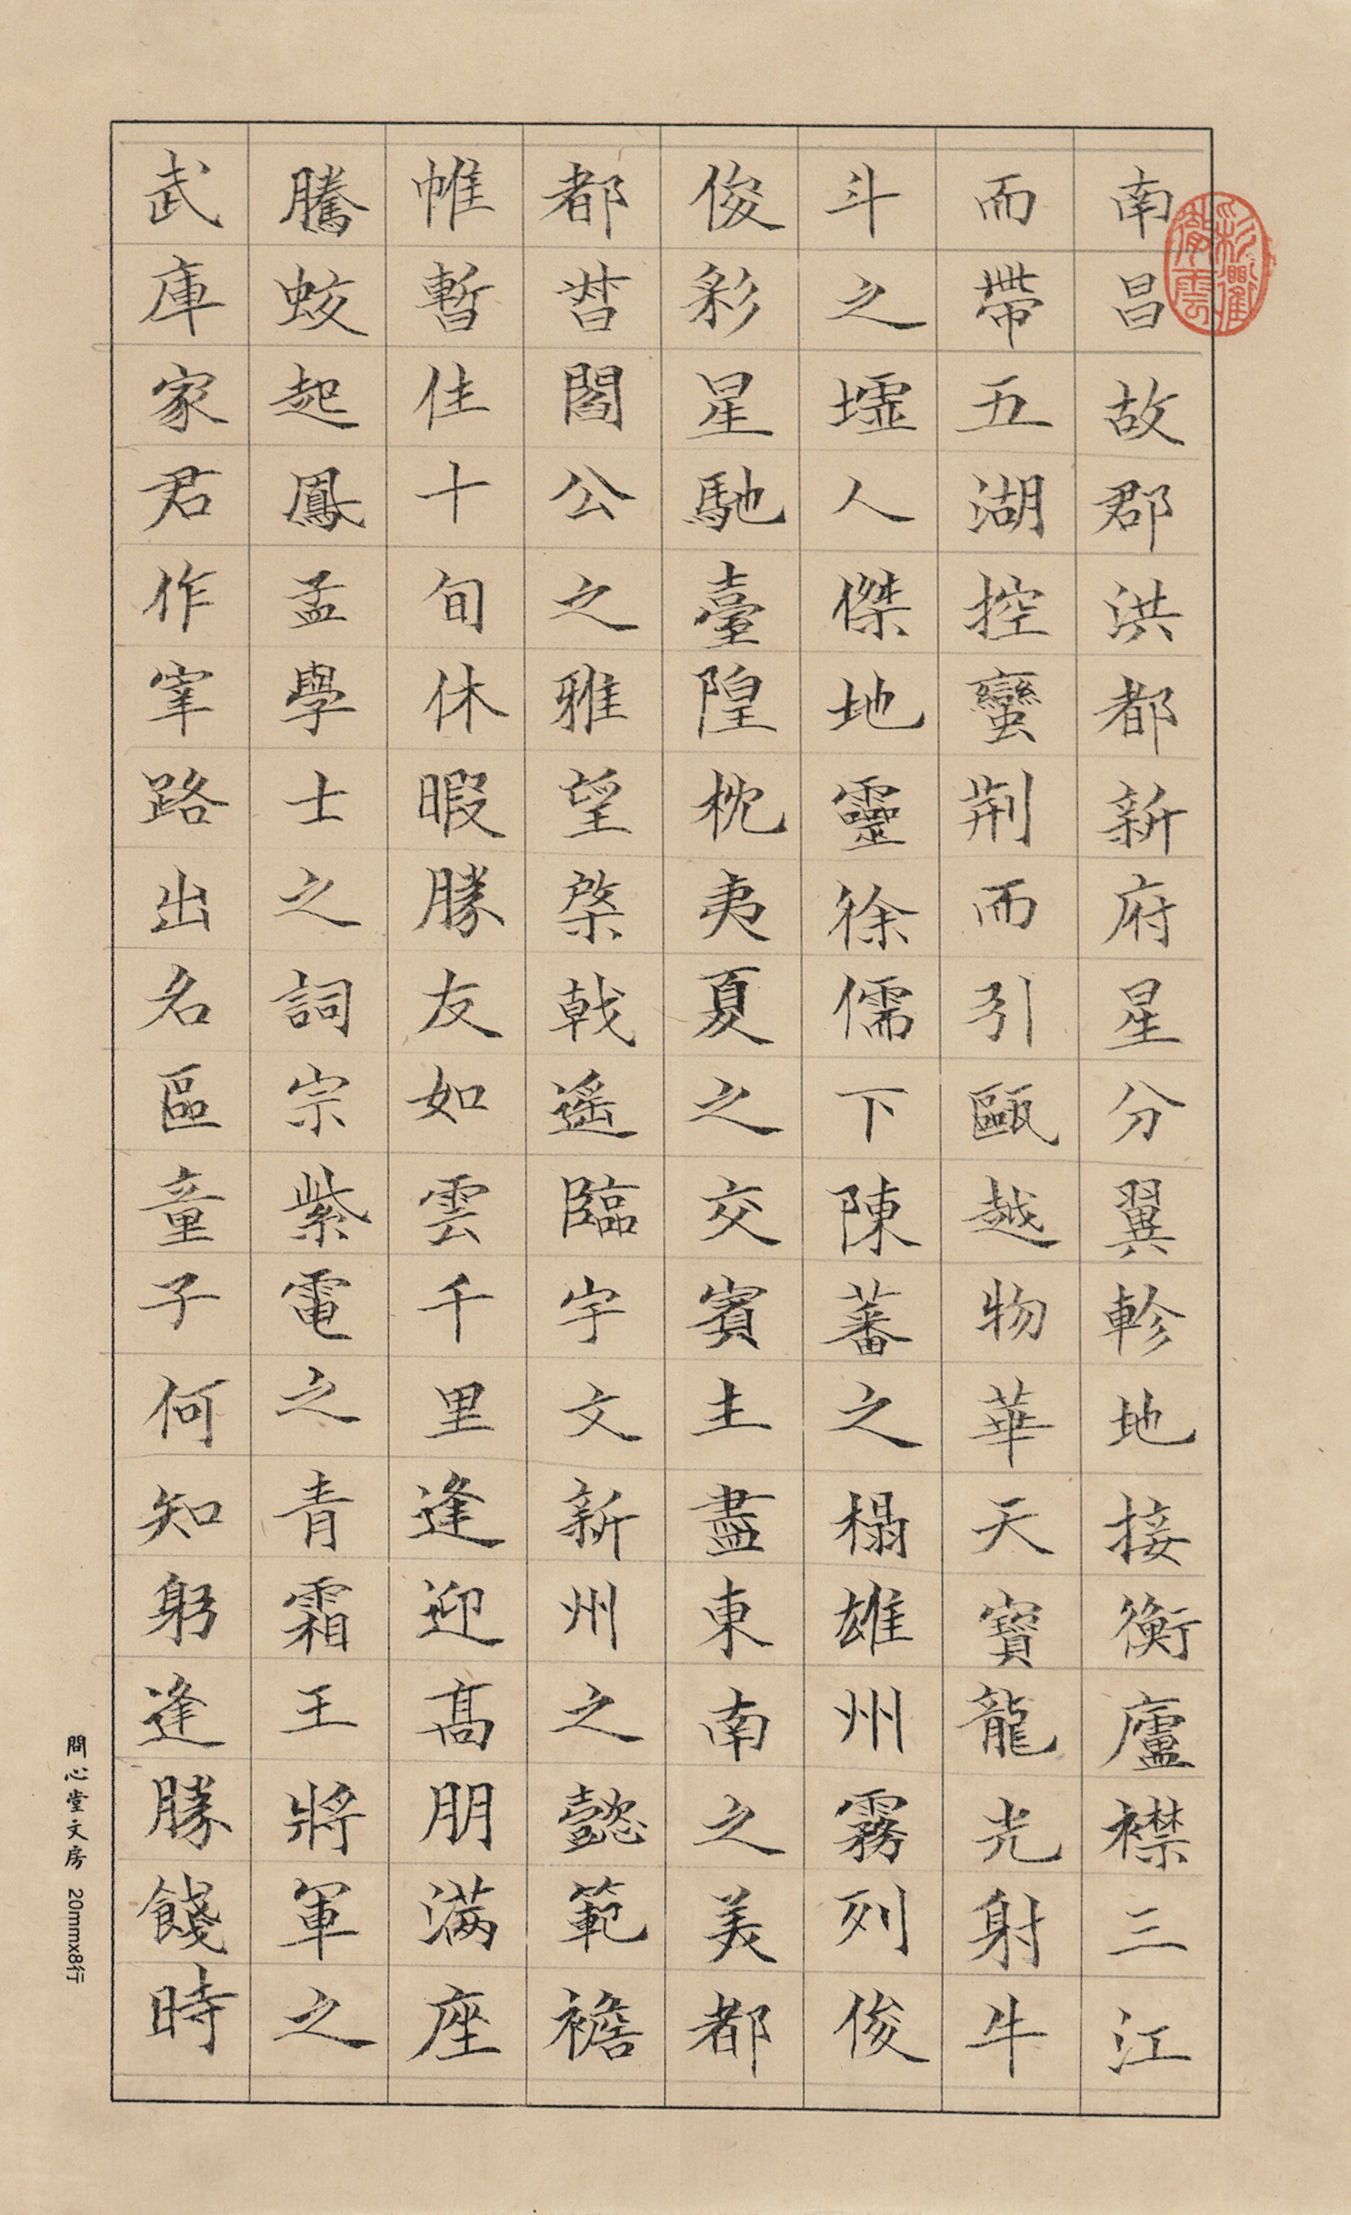 南昌故郡洪都新府星分翼軫地接衡廬襟三江
而帶五湖控蠻荆而引甌越物華天寶龍光射牛
斗之墟人傑地靈徐儒下陳蕃之榻雄州霧列俊
俊彩星馳臺隍枕夷夏之交賓主盡東南之美都
都督閻公之雅望棨戟遥臨宇文新州之懿範襜
帷暫住十旬休暇勝友如雲千里逢迎髙朋满座
騰蛟起鳳孟學士之詞宗紫電之青霜王將軍之
武庫家君作宰路出名區童子何知躬逢勝餞時
問心堂文房 20mmx8行